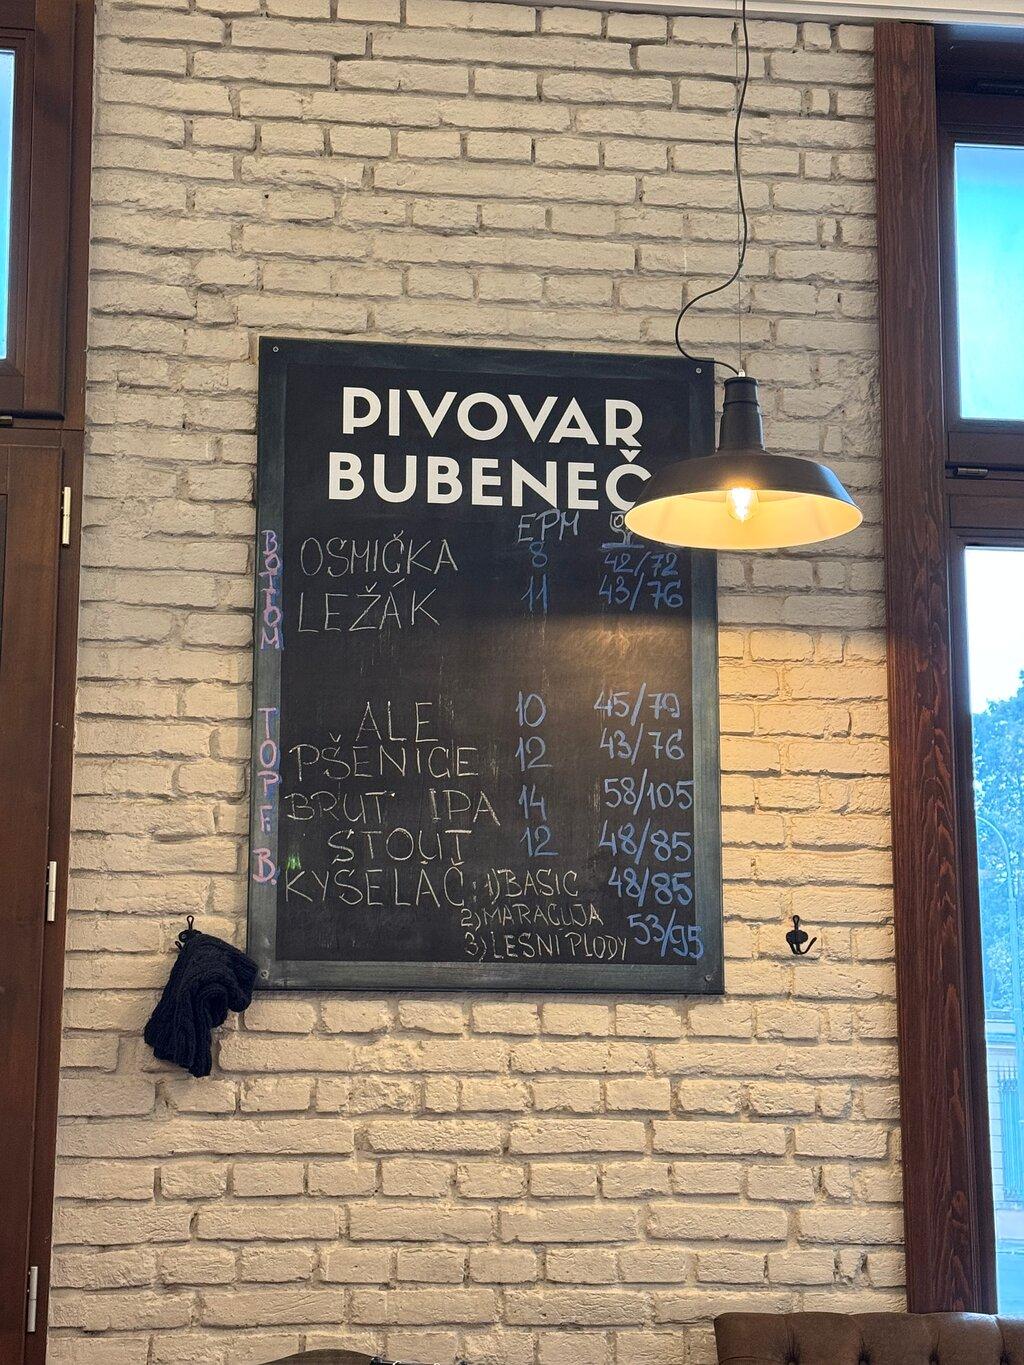 PIVOVAR
BUBENEČ
EPM
BOTTOM
OSMIČKA 8 42/72
LEŽÁK 11 43/76
TOPF. B.
ALE 10 45/79
PŠENICE 12 43/76
BRUT IPA 14 58/105
STOUT 12 48/85
KYSELÁČ 1) BASIC 48/85
2) MARACUJA
3) LESNI PLODY 53/95